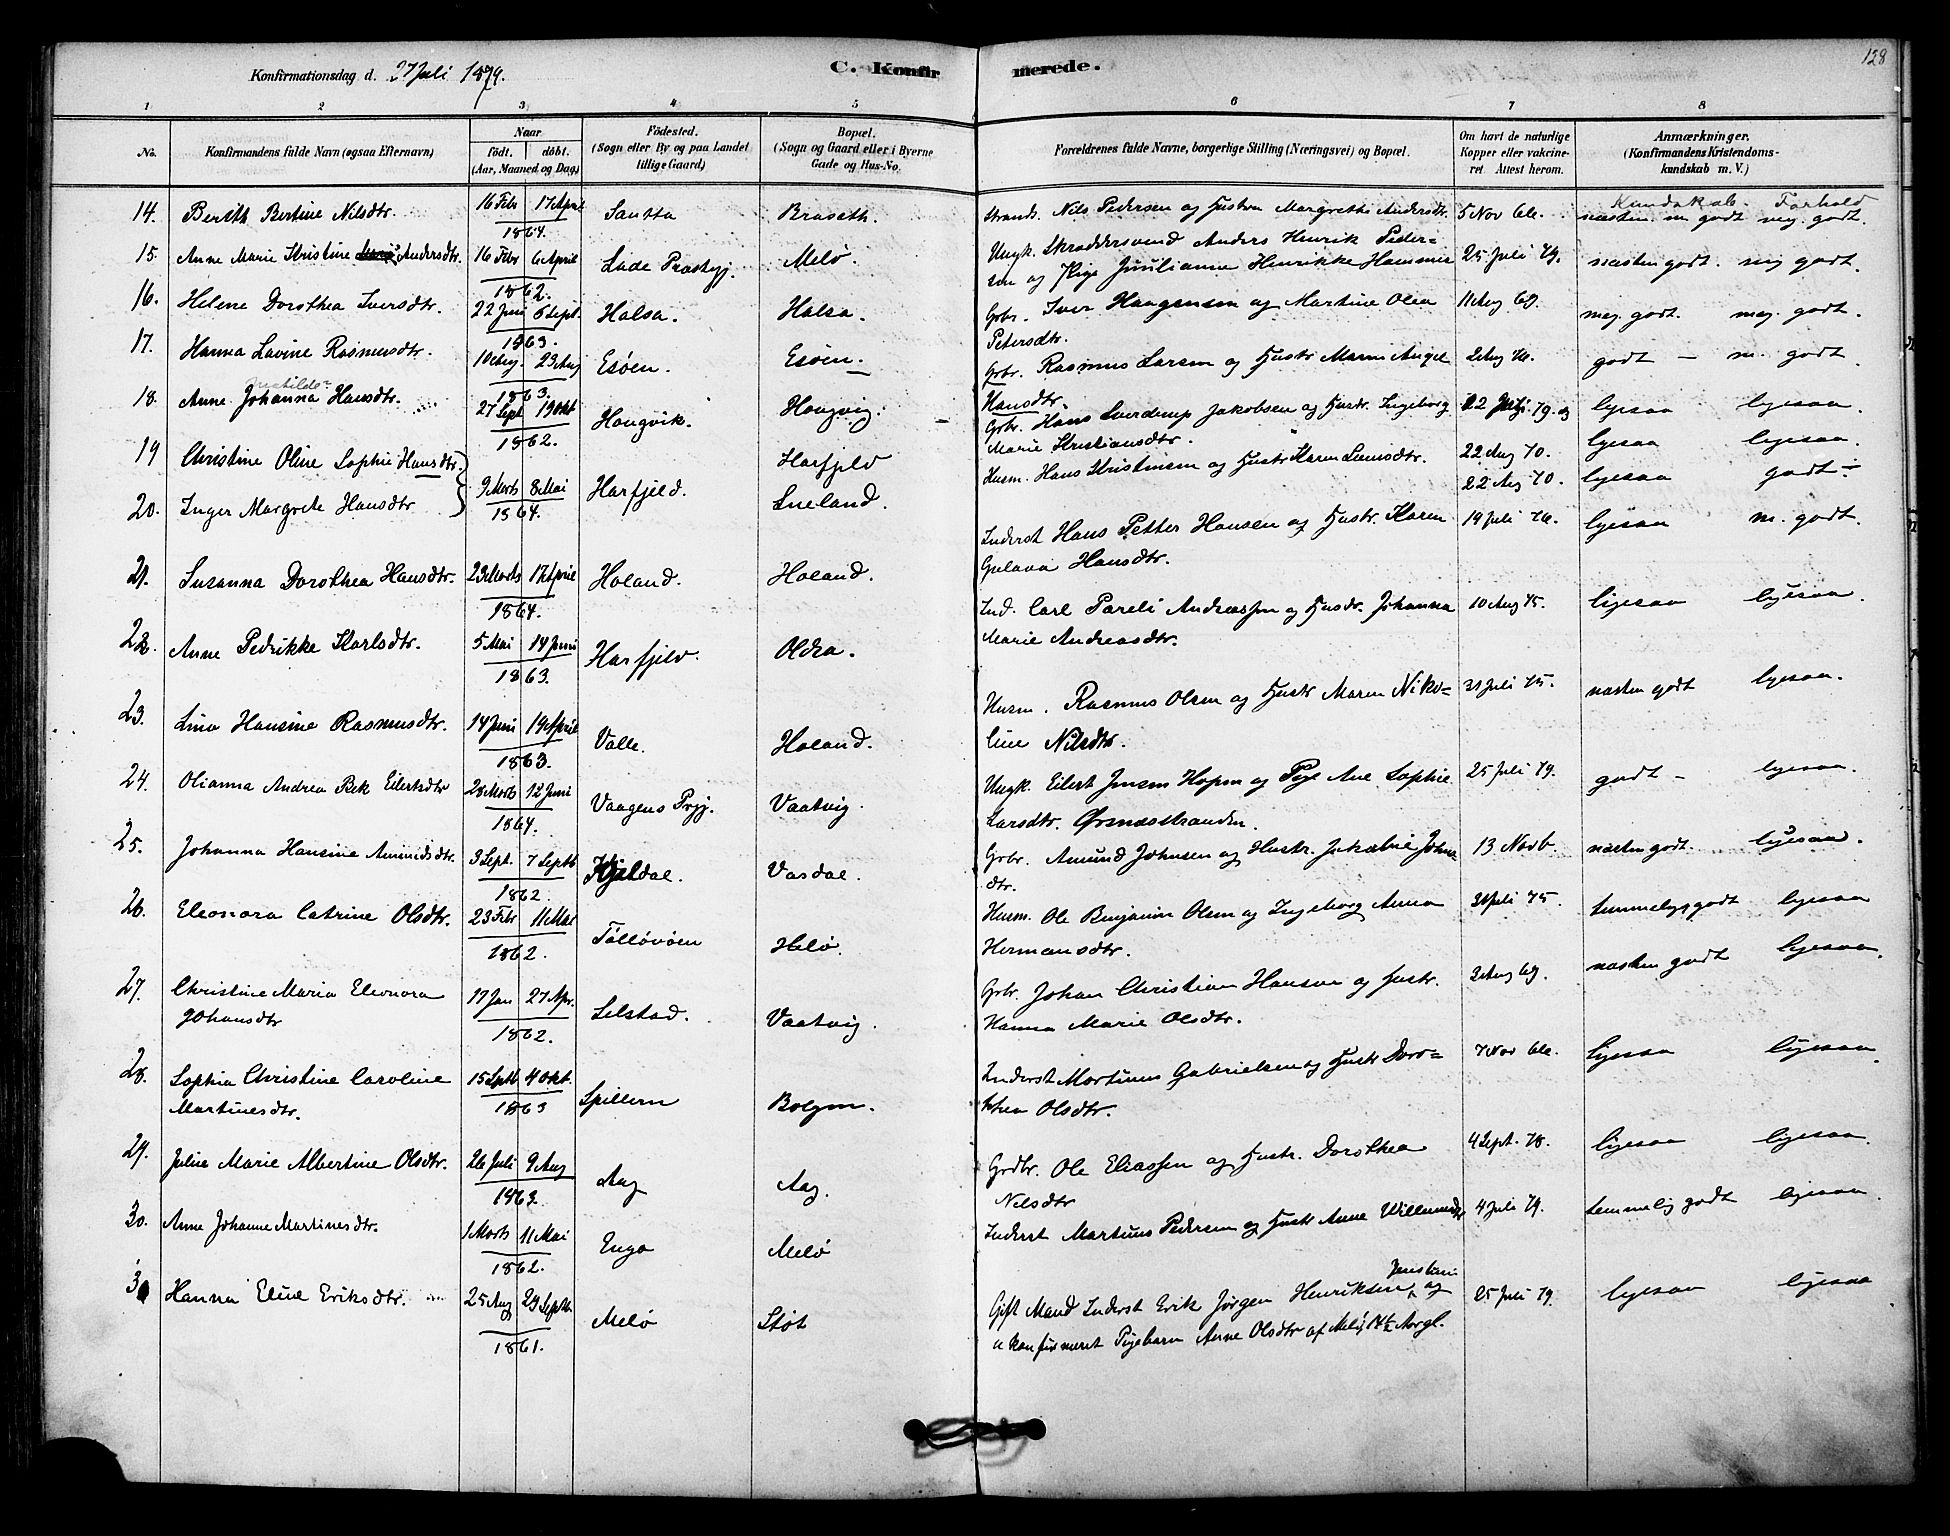 128
Konfirmationsdag d. 27 Juli 1879. C. Konfirmerede.
1 2 3 4 5 6 7 8
No. Konfirmandens fulde Navn (ogsaa Efternavn) Naar født, døbt. (Aar, Maaned og Dag) Fødested. (Sogn eller By og paa Landet tillige Gaard) Bopæl. (Sogn og Gaard eller i Byerne Gade og Hus-No. Forældrenes fulde Navne, borgerlige Stilling (Næringsvei) og Bopæl. Om havt de naturlige Kopper eller vakcineret. Attest herom. Anmærkninger. (Konfirmandens Kristendomskundskab m. V.)
Kundskab. Forhold
14. Berith Bertine Nilsdtr. 16 Febr 17 April 1864. Santta Braseth. Strands. Nils Pedersen og Hustru Margrethe Andersdtr. 5 Nov 66. næsten m godt meg. godt.
15. Anne Marie Kristine Andersdtr. 16 Febr 6 April 1862. Lade Præstegj. Melø. Ungk. Skræddersvend Anders Henrik Peder=
sen og Pige Juulianne Henrikke Hammer 25 Juli 79. næsten godt. meg godt.
16. Helene Dorothea Iversdtr. 22 Juni 6 Sept. 1863. Halsa. Halsa. Grbr. Iver Haagensen og Martine Olea
Petersdtr. 11 Aug 69. meg. godt. meg. godt.
17. Hanna Lavine Rasmusdtr. 10 Aug 23 Aug 1863. Esøen. Esøen. Grbr. Rasmus Larsen og Hustr Maren Angel
Hansdtr. 2 Aug 76. godt – m. godt
18. Anne Johanna Hansdtr. 27 Sept 19 Okt 1862. Haugvik. Haugvig. Grbr. Hans Sverdrup Jakobsen og Hustr. Ingeborg
Marie Kristiansdtr. 22 Juli 79. ligesaa ligesaa.
19 Christine Oline Sophie Hansdtr. Harfjeld Husm. Hans Kristensen og Hustr Karen Luusdtr. 22 Aug 70. ligesaa ligesaa.
20. Inger Margrete Hansdtr 9 Marts 8 Mai 1864. Harfjeld. Sneland. 22 Aug 70. ligesaa godt –
21. Susanna Dorothea Hansdtr. 23 Marts 17 April 1864. Holand. Holand. Inderst Hans Petter Hansen og Hustr. Karen
Gulava Hansdtr. 19 Juli 76. ligesaa m. godt.
22. Anne Pedrikke Karlsdtr. 5 Mai 14 Juni 1863. Harfjeld. Oldra. Ind. Carl Pareli Andreassen og Hustr. Johanna
Marie Andreasdtr. 10 Aug 75. ligesaa ligesaa.
23. Lina Hansine Rasmusdtr. 14 Juni 19 April 1863. Valle. Holand. Husm. Rasmus Olsen og Hustr Maren Niko=
line Nilsdtr. 31 Juli 75. næsten godt ligesaa.
24. Olianna Andrea Bek Eilertsdtr 28 Marts 12 Juni 1864. Vaagens Prgj. Vaatvig. Ungk. Eilert Jensen Hopen og Pige Ane Sophie
Larsdtr. Ørnæsstranden. 25 Juli 79. godt – ligesaa.
25. Johanna Hansine Amundsdtr. 3 Sept. 7 Septb 1862. Kjeldal. Vasdal. Grbr. Amund Johnsen og Hustr. Jakobine Johns
dtr. 13 Novb. næsten godt. ligesaa.
26. Eleonora Catrine Olsdtr. 23 Febr 11 Mai 1862. Tølløvøen Melø. Husm. Ole Benjamin Olsen og Ingeborg Anna
Hermansdtr. 31 Juli 75. temmelig godt ligesaa
27. Christine Maria Eleonora
Johansdtr 17 Jan 27 Apr. 1862. Selstad. Vaatvig. Grbr. Johan Christian Hansen og Hustr.
Hanna Marie Olsdtr. 3 Aug 69. næsten godt ligesaa.
28. Sophia Christine Caroline
Martinesdtr. 15 Septb 4 Okt. 1863 Spilleren Bolgen. Inderst Martinus Gabrielsen og Hustr Doro=
thea Olsdtr. 7 Nov 66. ligesaa ligesaa.
29. Juline Marie Albertine Olsdtr. 26 Juli 9 Aug 1863. Aag Aag. Grdbr. Ole Eliassen og Hustr. Dorothea
Nilsdtr 4 Sept. 78. ligesaa ligesaa.
30. Anne Johanne Martinesdtr. 1 Marts 11 Mai 1862. Enga Melø Inderst Martinus Pedersen og Hustr Anne Willumsdtr 4 Juli 79. temmelig godt ligesaa.
31 Hanna Eline Eriksdtr. 25 Aug 29 Septb. 1861. Melø Støt Gift Mand Inderst Erik Jørgen Henriksen og
ukonfirmeret Pigebarn Anne Olsdtr af Melø, 14½ Aar gl. 25 Juli 79. ligesaa ligesaa